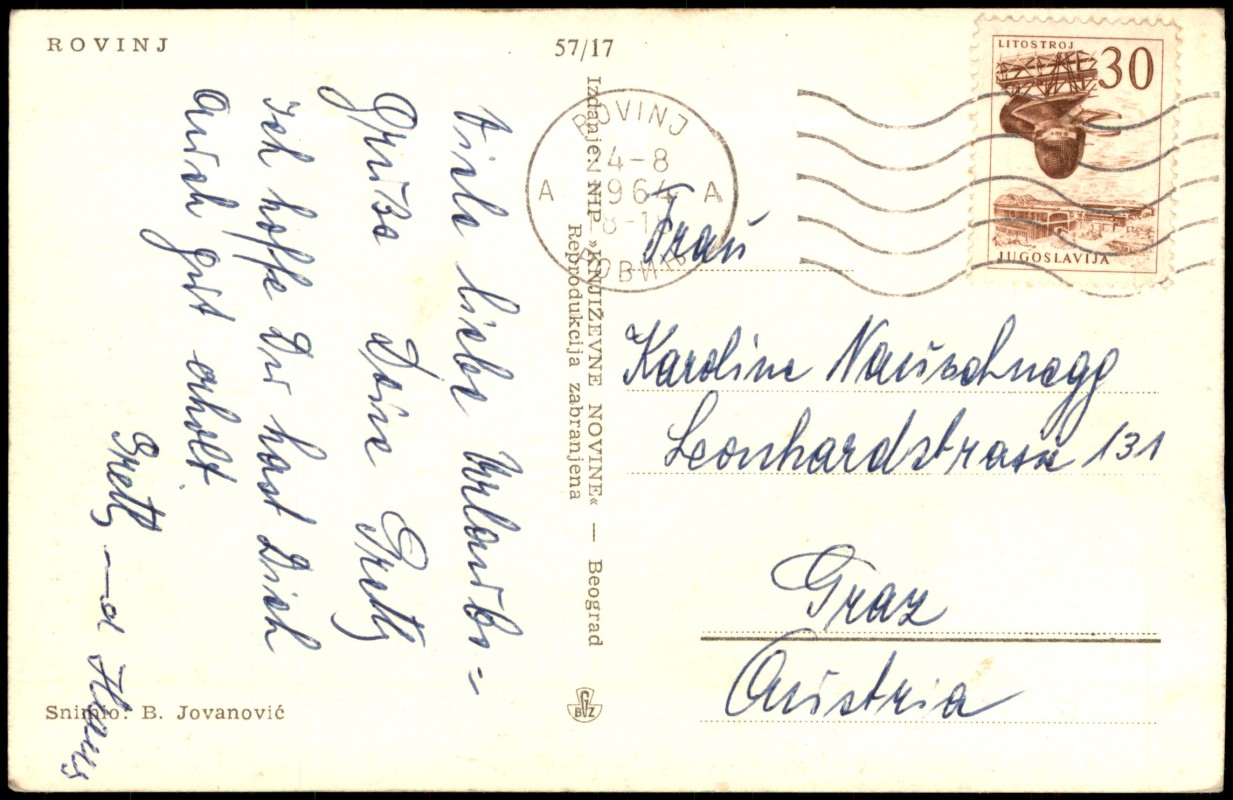 ROVINJ
57/17
LITOSTROJ
30
JUGOSLAVIJA
ROVINJ
4-8
1964
A A
8-1
Viele liebe Urlaubs=
Grüße Deine Gretl
Ich hoffe Du hast Dich
auch gut erholt.
Gretl
Hans
Izdanje: NIP »KNJIŽEVNE NOVINE« — Beograd
Reprodukcija zabranjena
Frau
Karoline Nauschnegg
Leonhardstrasse 131
Graz
Austria
Snimio: B. Jovanović
GZ
B Z